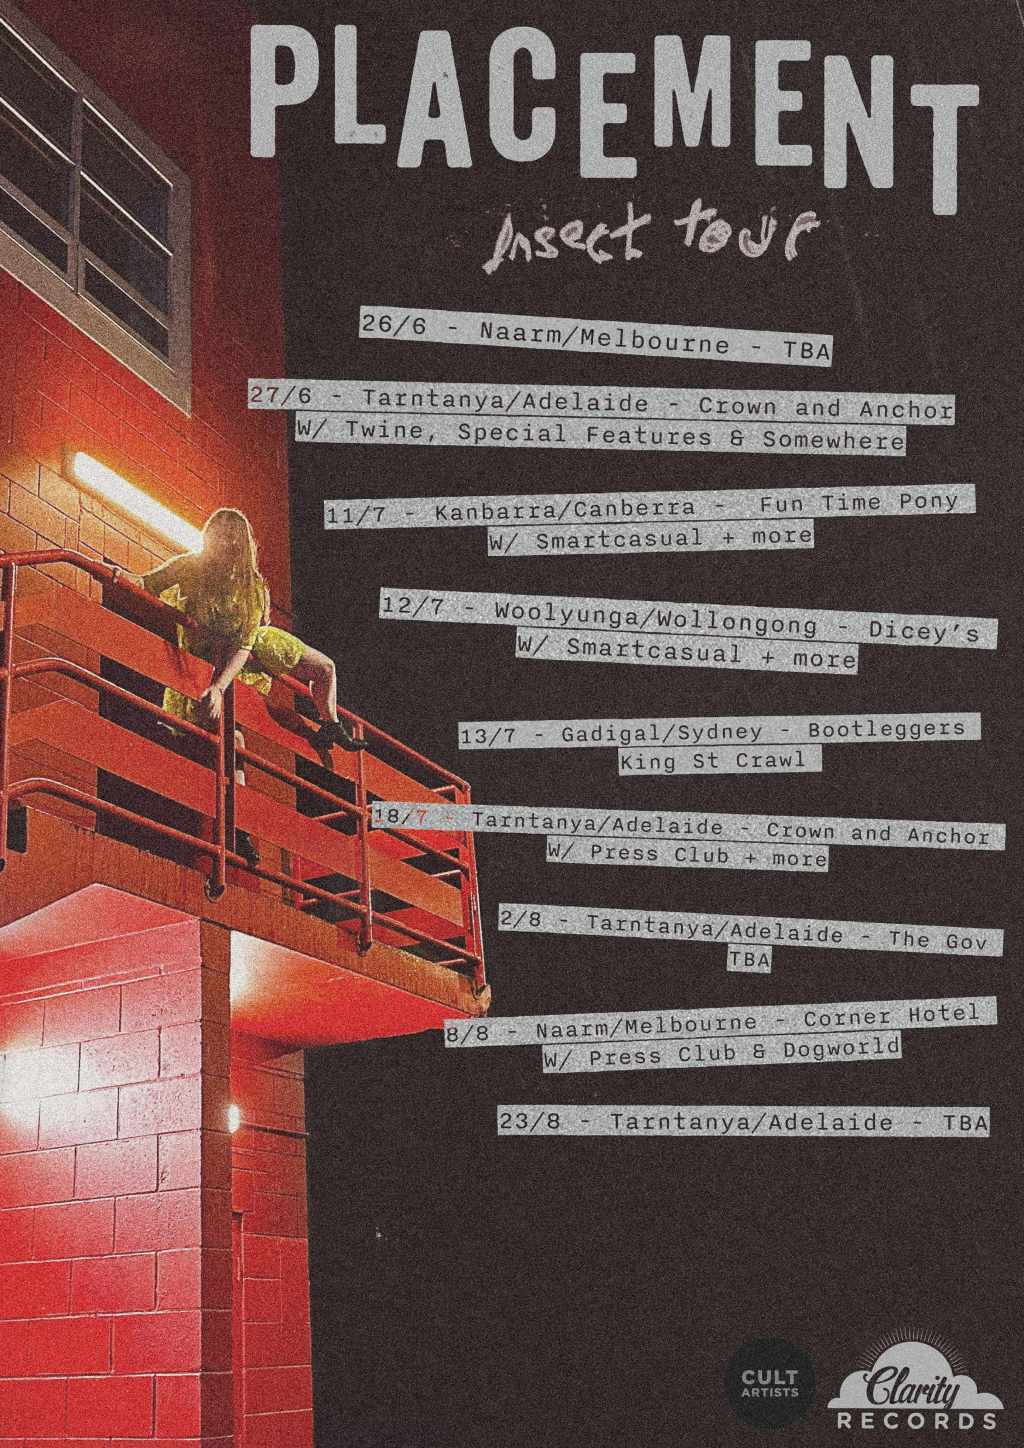 PLACEMENT
Insect tour
26/6 - Naarm/Melbourne - TBA
27/6 - Tarntanya/Adelaide - Crown and Anchor
W/ Twine, Special Features & Somewhere
11/7 - Kanbarra/Canberra - Fun Time Pony
W/ Smartcasual + more
12/7 - Woolyunga/Wollongong - Dicey's
W/ Smartcasual + more
13/7 - Gadigal/Sydney - Bootleggers
King St Crawl
18/7 - Tarntanya/Adelaide - Crown and Anchor
W/ Press Club + more
2/8 - Tarntanya/Adelaide - The Gov
TBA
8/8 - Naarm/Melbourne - Corner Hotel
W/ Press Club & Dogworld
23/8 - Tarntanya/Adelaide - TBA
CULT
ARTISTS
Clarity
RECORDS